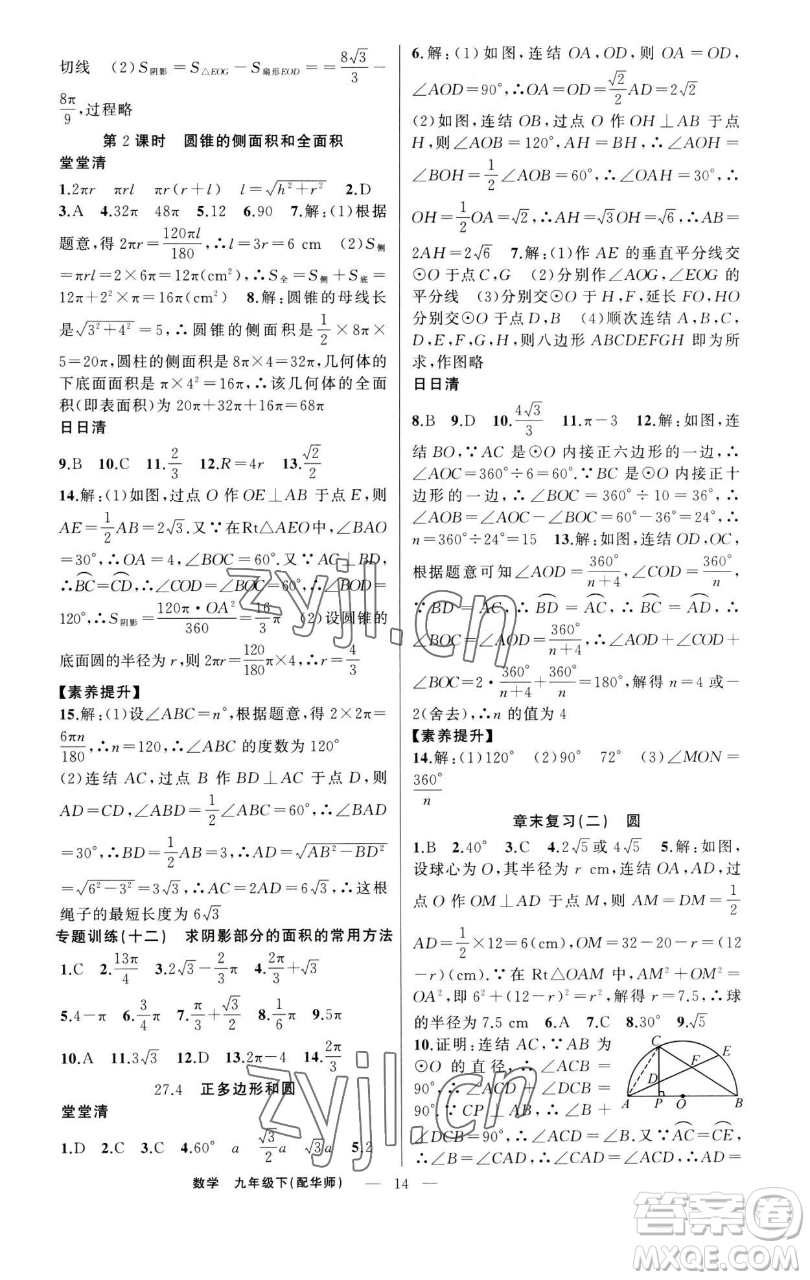 切线　(2)S阴影=S△EOG－S扇形EOD==8√3/3－
8π/9,过程略
第2课时　圆锥的侧面积和全面积
堂堂清
1.2πr　πrl　πr(r+l)　l=√(h²+r²)　2.D
3.A　4.32π　48π　5.12　6.90　7.解:(1)根据
题意,得 2πr=120πl/180,∴l=3r=6 cm　(2)S侧
=πrl=2×6π=12π(cm²),∴S全=S侧+S底=
12π+2²×π=16π(cm²)　8.解:圆锥的母线长
是√(3²+4²)=5,∴圆锥的侧面积是1/2×8π×
5=20π,圆柱的侧面积是 8π×4=32π,几何体的
下底面面积是 π×4²=16π,∴该几何体的全面
积(即表面积)为 20π+32π+16π=68π
日日清
9.B　10.C　11.2/3　12.R=4r　13.√2/2
14.解:(1)如图,过点 O 作 OE⊥AB 于点 E,则
AE=1/2AB=2√3.又∵在Rt△AEO中,∠BAO
=30°,∴OA=4,∠BOC=60°.又∵AC⊥BD,
∴⌒BC=⌒CD,∴∠COD=∠BOC=60°,∴∠BOD=
120°,∴S阴影=120π·OA²/360=16/3π　(2)设圆锥的
底面圆的半径为 r,则 2πr=120/180π×4,∴r=4/3
【素养提升】
15.解:(1)设∠ABC=n°,根据题意,得 2×2π=
6πn/180,∴n=120,∴∠ABC 的度数为 120°
(2)连结 AC,过点 B 作 BD⊥AC 于点 D,则
AD=CD,∠ABD=1/2∠ABC=60°,∴∠BAD
=30°,∴BD=1/2AB=3,∴AD=√(AB²－BD²)
=√(6²－3²)=3√3,∴AC=2AD=6√3,∴这根
绳子的最短长度为 6√3
专题训练(十二)　求阴影部分的面积的常用方法
1.C　2.13π/4　3.2√3－2π/3　4.√3+2π/3
5.4－π　6.3/4π　7.π/4+√3/2　8.1/6　9.5π
10.A　11.3√3　12.D　13.2π－4
27.4　正多边形和圆
堂堂清
1.D　2.C　3.C　4.60°　a　√3/2a　√3a　5.2
6.解:(1)如图,连结 OA,OD,则 OA=OD,
∠AOD=90°,∴OA=OD=√2/2AD=2√2
(2)如图,连结 OB,过点 O 作 OH⊥AB 于点
H,则∠AOB=120°,AH=BH,∴∠AOH=
∠BOH=1/2∠AOB=60°,∴∠OAH=30°,∴
OH=1/2OA=√2,∴AH=√3OH=√6,∴AB=
2AH=2√6　7.解:(1)作 AE 的垂直平分线交
⊙O 于点 C,G　(2)分别作∠AOG,∠EOG 的
平分线　(3)分别交⊙O 于 H,F,延长 FO,HO
分别交⊙O 于点 B,D　(4)顺次连结 A,B,C,
D,E,F,G,H,则八边形 ABCDEFGH 即为所
求,作图略
日日清
8.B　9.D　10.4√3/3　11.π－3　12.解:如图,连
结 BO,∵AC 是⊙O 内接正六边形的一边,∴
∠AOC=360°÷6=60°.∵BC 是⊙O 内接正十
边形的一边,∴∠BOC=360°÷10=36°,∴
∠AOB=∠AOC－∠BOC=60°－36°=24°,∴
n=360°÷24°=15　13.解:如图,连结 OD,OC,
根据题意可知∠AOD=360°/(n+4),∠BOC=360°/n,
∵BD=AC,∴⌒BD=⌒AC,∴⌒BC=⌒AD,∴
∠BOC=∠AOD=360°/(n+4),∴∠AOD+∠COD+
∠BOC=2·360°/(n+4)+360°/n=180°,解得 n=4 或－
2(舍去),∴n 的值为 4
【素养提升】
14.解:(1)120°　(2)90°　72°　(3)∠MON=
360°/n
章末复习(二)　圆
1.B　2.40°　3.C　4.2√5或4√5　5.解:如图,
设球心为 O,其半径为 r cm,连结 OA,AD,过
点 O 作 OM⊥AD 于点 M,则 AM=DM=1/2
AD=1/2×12=6(cm),OM=32－20－r=(12
－r)cm.∵在 Rt△OAM 中,AM²+OM²=
OA²,即 6²+(12－r)²=r²,解得 r=7.5,∴球
的半径为 7.5 cm　6.A　7.C　8.30°　9.√5
10.证明:连结 AC,∵AB 为
⊙O 的直径,∴∠ACB=
90°,∴∠DCA+∠DCB=
90°.∵CP⊥AB,∴∠B+
∠DCB=90°,∴∠DCA=∠B.又∵⌒AC=⌒CE,∴
∠CAE=∠B,∴∠CAE=∠DCA,∴AD=CD
C
E
F
D
A
P
O
B
数学　九年级下(配华师)　— 14 —
zyjl.cn
zyjl.cn
答案卷
MXQE.COM